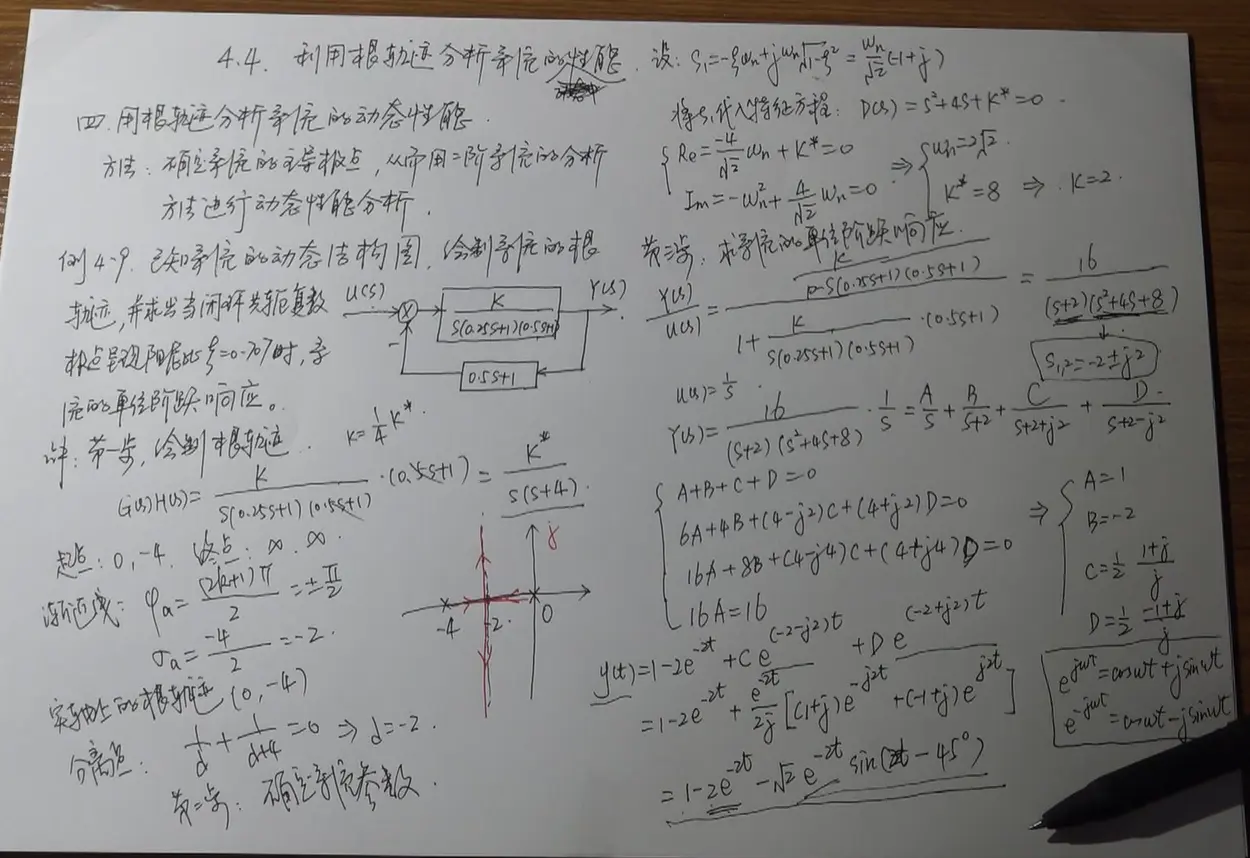 4.4. 利用根轨迹分析系统的性能.
四. 用根轨迹分析系统的动态性能.
方法: 确定系统的主导极点, 从而用二阶系统的分析
方法进行动态性能分析.
例4-9. 已知系统的动态结构图. 绘制系统的根
轨迹, 并求出当闭环共轭复数
极点呈现阻尼比ξ=0.707时, 系
统的单位阶跃响应。
U(s) K / S(0.25S+1)(0.5S+1) Y(s)
−
0.5S+1
详: 第一步, 绘制根轨迹. K=1/4 K*.
G(s)H(s)= K / S(0.25S+1)(0.5S+1) ·(0.5S+1)= K* / S(S+4).
起点: 0, -4. 终点: ∞. ∞.
渐近线: φa= (2k+1)π / 2 =±π/2
σa= -4/2 =-2.
实轴上的根轨迹 (0,-4)
分离点: 1/d + 1/(d+4) =0 ⇒ d=-2.
j
-4 -2. 0
第二步: 确定系统参数.
设: S1=-ξωn+jωn√1-ξ² = ωn/√2 (-1+j)
将S1代入特征方程: D(s)=S²+4S+K*=0.
Re= -4/√2 ωn+K*=0
Im=-ωn²+ 4/√2 ωn=0
⇒ ωn=2√2.
K*=8 ⇒ K=2.
第三步: 求系统的单位阶跃响应.
Y(s)/U(s) = K / S(0.25S+1)(0.5S+1) / 1+ K / S(0.25S+1)(0.5S+1) ·(0.5S+1) = 16 / (S+2)(S²+4S+8)
S1,2=-2±j2
U(s)=1/S.
Y(s)= 16 / (S+2)(S²+4S+8) · 1/S = A/S + B/(S+2) + C/(S+2+j2) + D/(S+2-j2)
A+B+C+D=0
6A+4B+(4-j2)C+(4+j2)D=0
16A+8B+(4-j4)C+(4+j4)D=0
16A=16
⇒ A=1
B=-2
C=1/2 (1+j)/j
D=1/2 (-1+j)/j
y(t)=1-2e^-2t +Ce^(-2-j2)t +De^(-2+j2)t
=1-2e^-2t + e^-2t/2j [(1+j)e^-j2t +(-1+j)e^j2t]
=1-2e^-2t -√2e^-2t sin(2t-45°)
e^jωt=cosωt+jsinωt
e^-jωt=cosωt-jsinωt